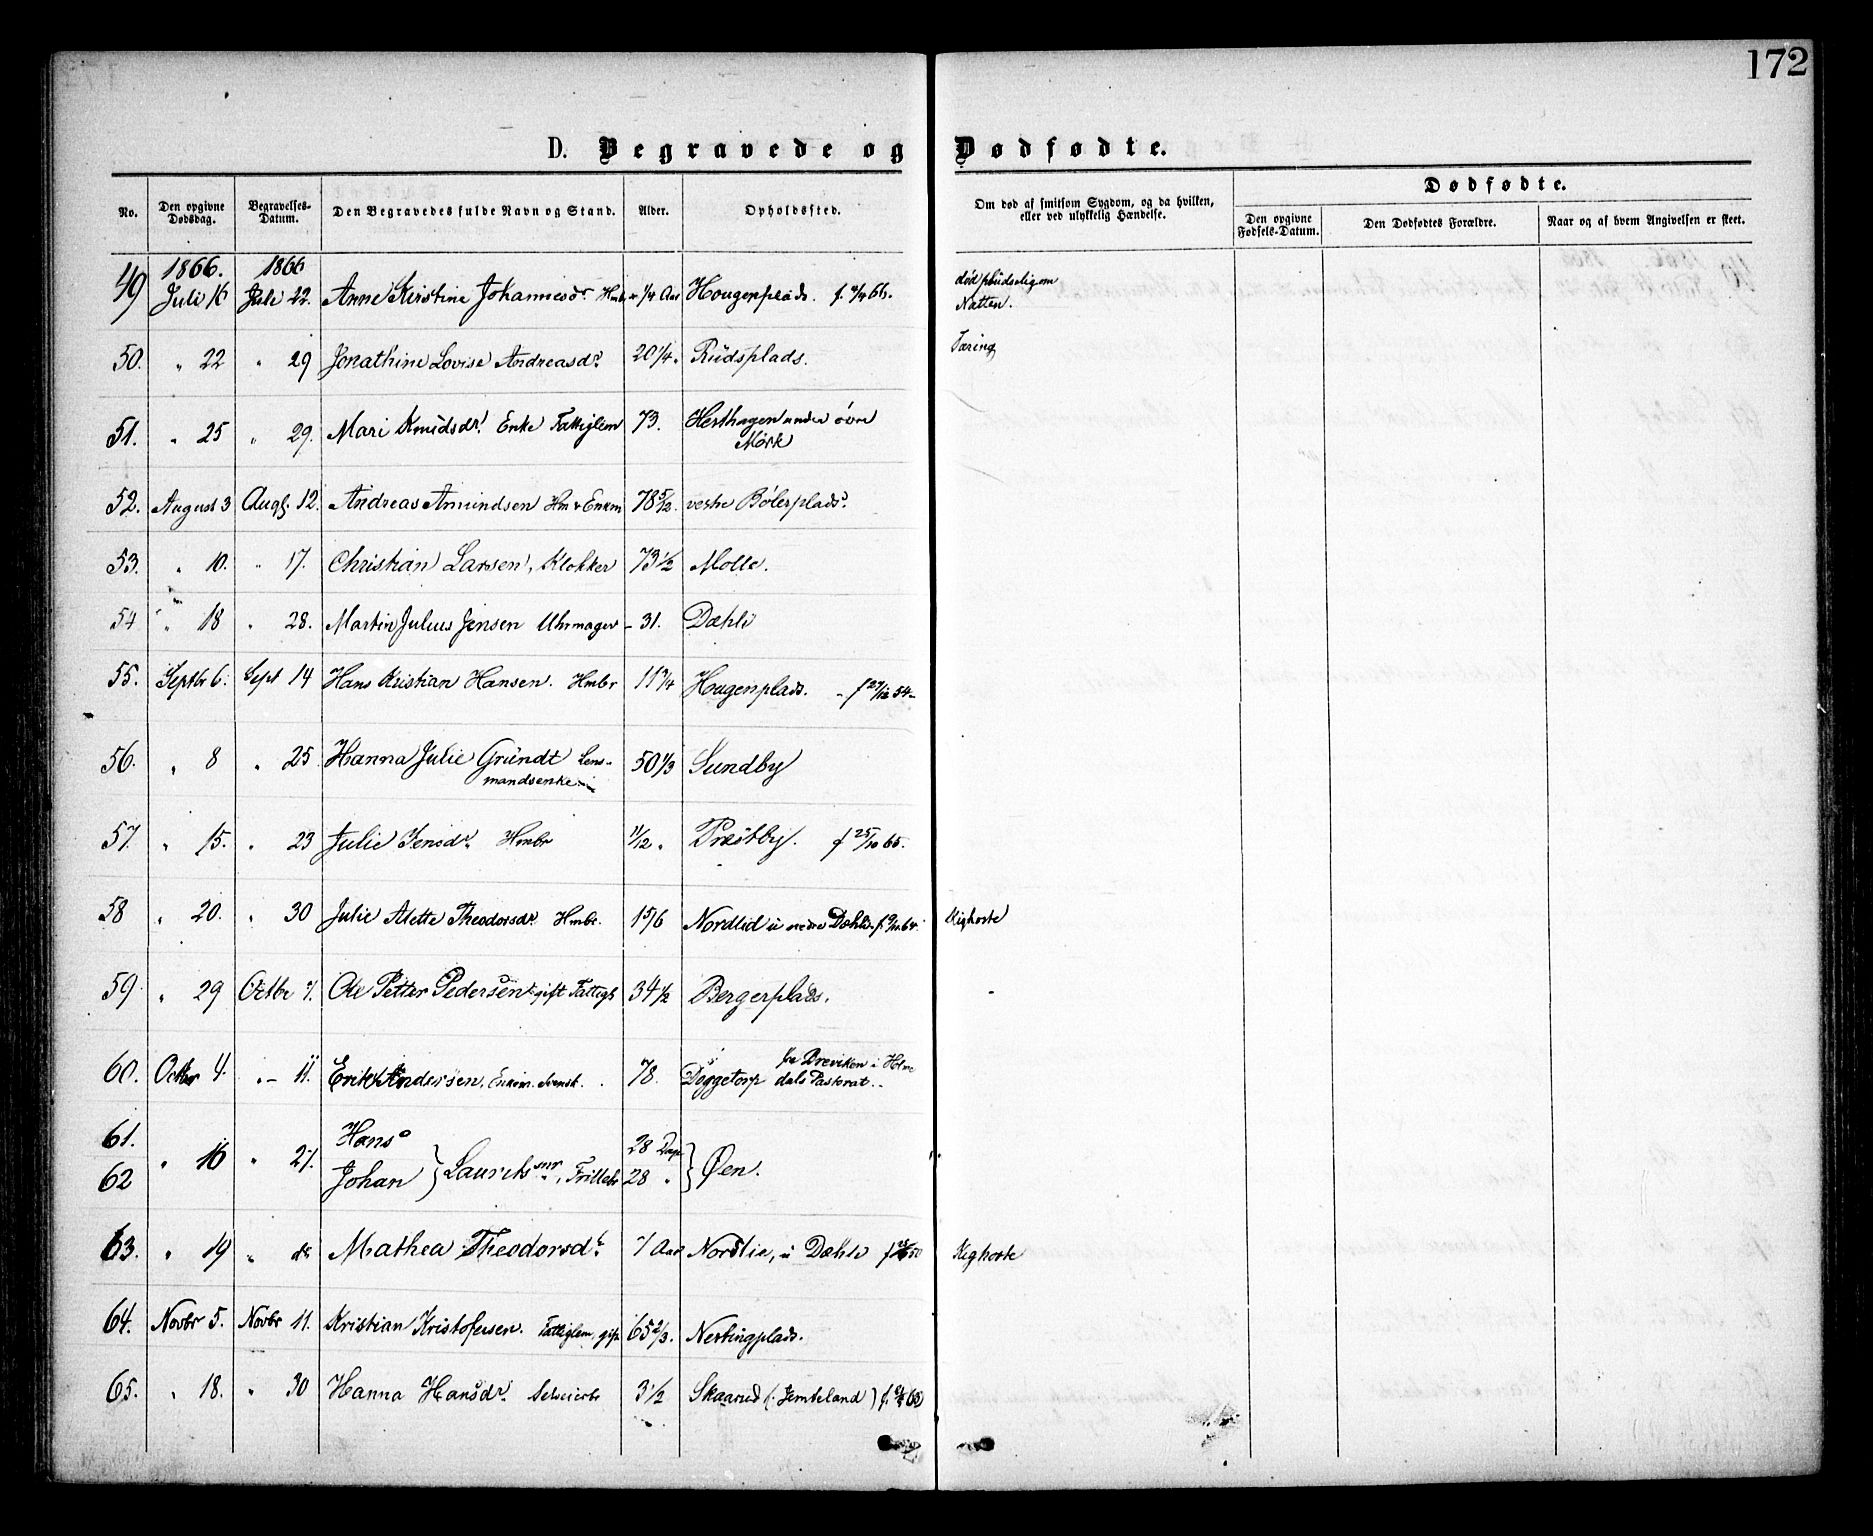 172
D. Begravede og Dødfødte.
No. Den opgivne Dødsdag. Begravelses-Datum. Den Begravedes fulde Navn og Stand. Alder. Opholdssted. Om død af smitsom Sygdom, og da hvilken, eller ved ulykkelig Hændelse. Dødfødte.
Den opgivne Fødsels-Datum. Den Dødfødtes Forældre. Naar og af hvem Angivelsen er skeet.
1866. 1866
49 Juli 16 Juli 22. Anne Kirstine Johannesdr. Hmbr 1/4 Aar Hougenplads. død pludselig om
Natten.
50. " 22 " 29 Jonathine Lovise Andreasdr 20 1/4 Rudsplads. Tæring
51. " 25 " 29. Mari Knudsdr. Enke Fattiglem 73. Hesthagen under övre
Mörk
52. August 3 Aug. 12. Andreas Amundsen Hm & Enkm 78 5/12. vestre Bölerplads.
53. " 10. " 17. Christian Larsen, Klokker 73 1/2 Molle.
54 " 18 " 28. Martin Julius Jensen Uhrmager 31. Dæhli
55. Septbr 6. Sept 14 Hans Kristian Hansen. Hmbr 11 3/4 Hougenplads. f 27/12 54
56. " 8 " 25 Hanna Julie Gründt Lens-
mandsenke 50 1/3 Sundby
57. " 15. " 23 Julie Jensdr. Hmbr 11/12 " Præstby. f 25/10 65.
58 " 20. " 30 Julie Alette Theodorsdr Hmbr. 1 5/6 Nordlid u nedre Dæhli Kighoste
59. " 29 Octbr 7. Ole Petter Pedersen gift Fattigl 34 1/2 Bergerplads.
60. Octbr 4. " 11. Erik Andersen. Enkem. Svensk. 78. Doggetorp fra Breviken i Holme
dals Pastorat.
61. " 16 " 21. Hans 28 Dage
62 Johan } Lauritssnr, Trilleb 28 " } Øen.
63. " 19 " do Mathea Theodorsdr. 7 Aar Nordlie, u Dæhli Kighoste
64. Novbr 5. Novbr 11. Kristian Kristofersen. Fattiglem, gift 65 2/3. Nestingplads.
65. " 18. " 30 Hanna Hansdr. Seleierbr 3 1/2 Skaarud (Jemteland)